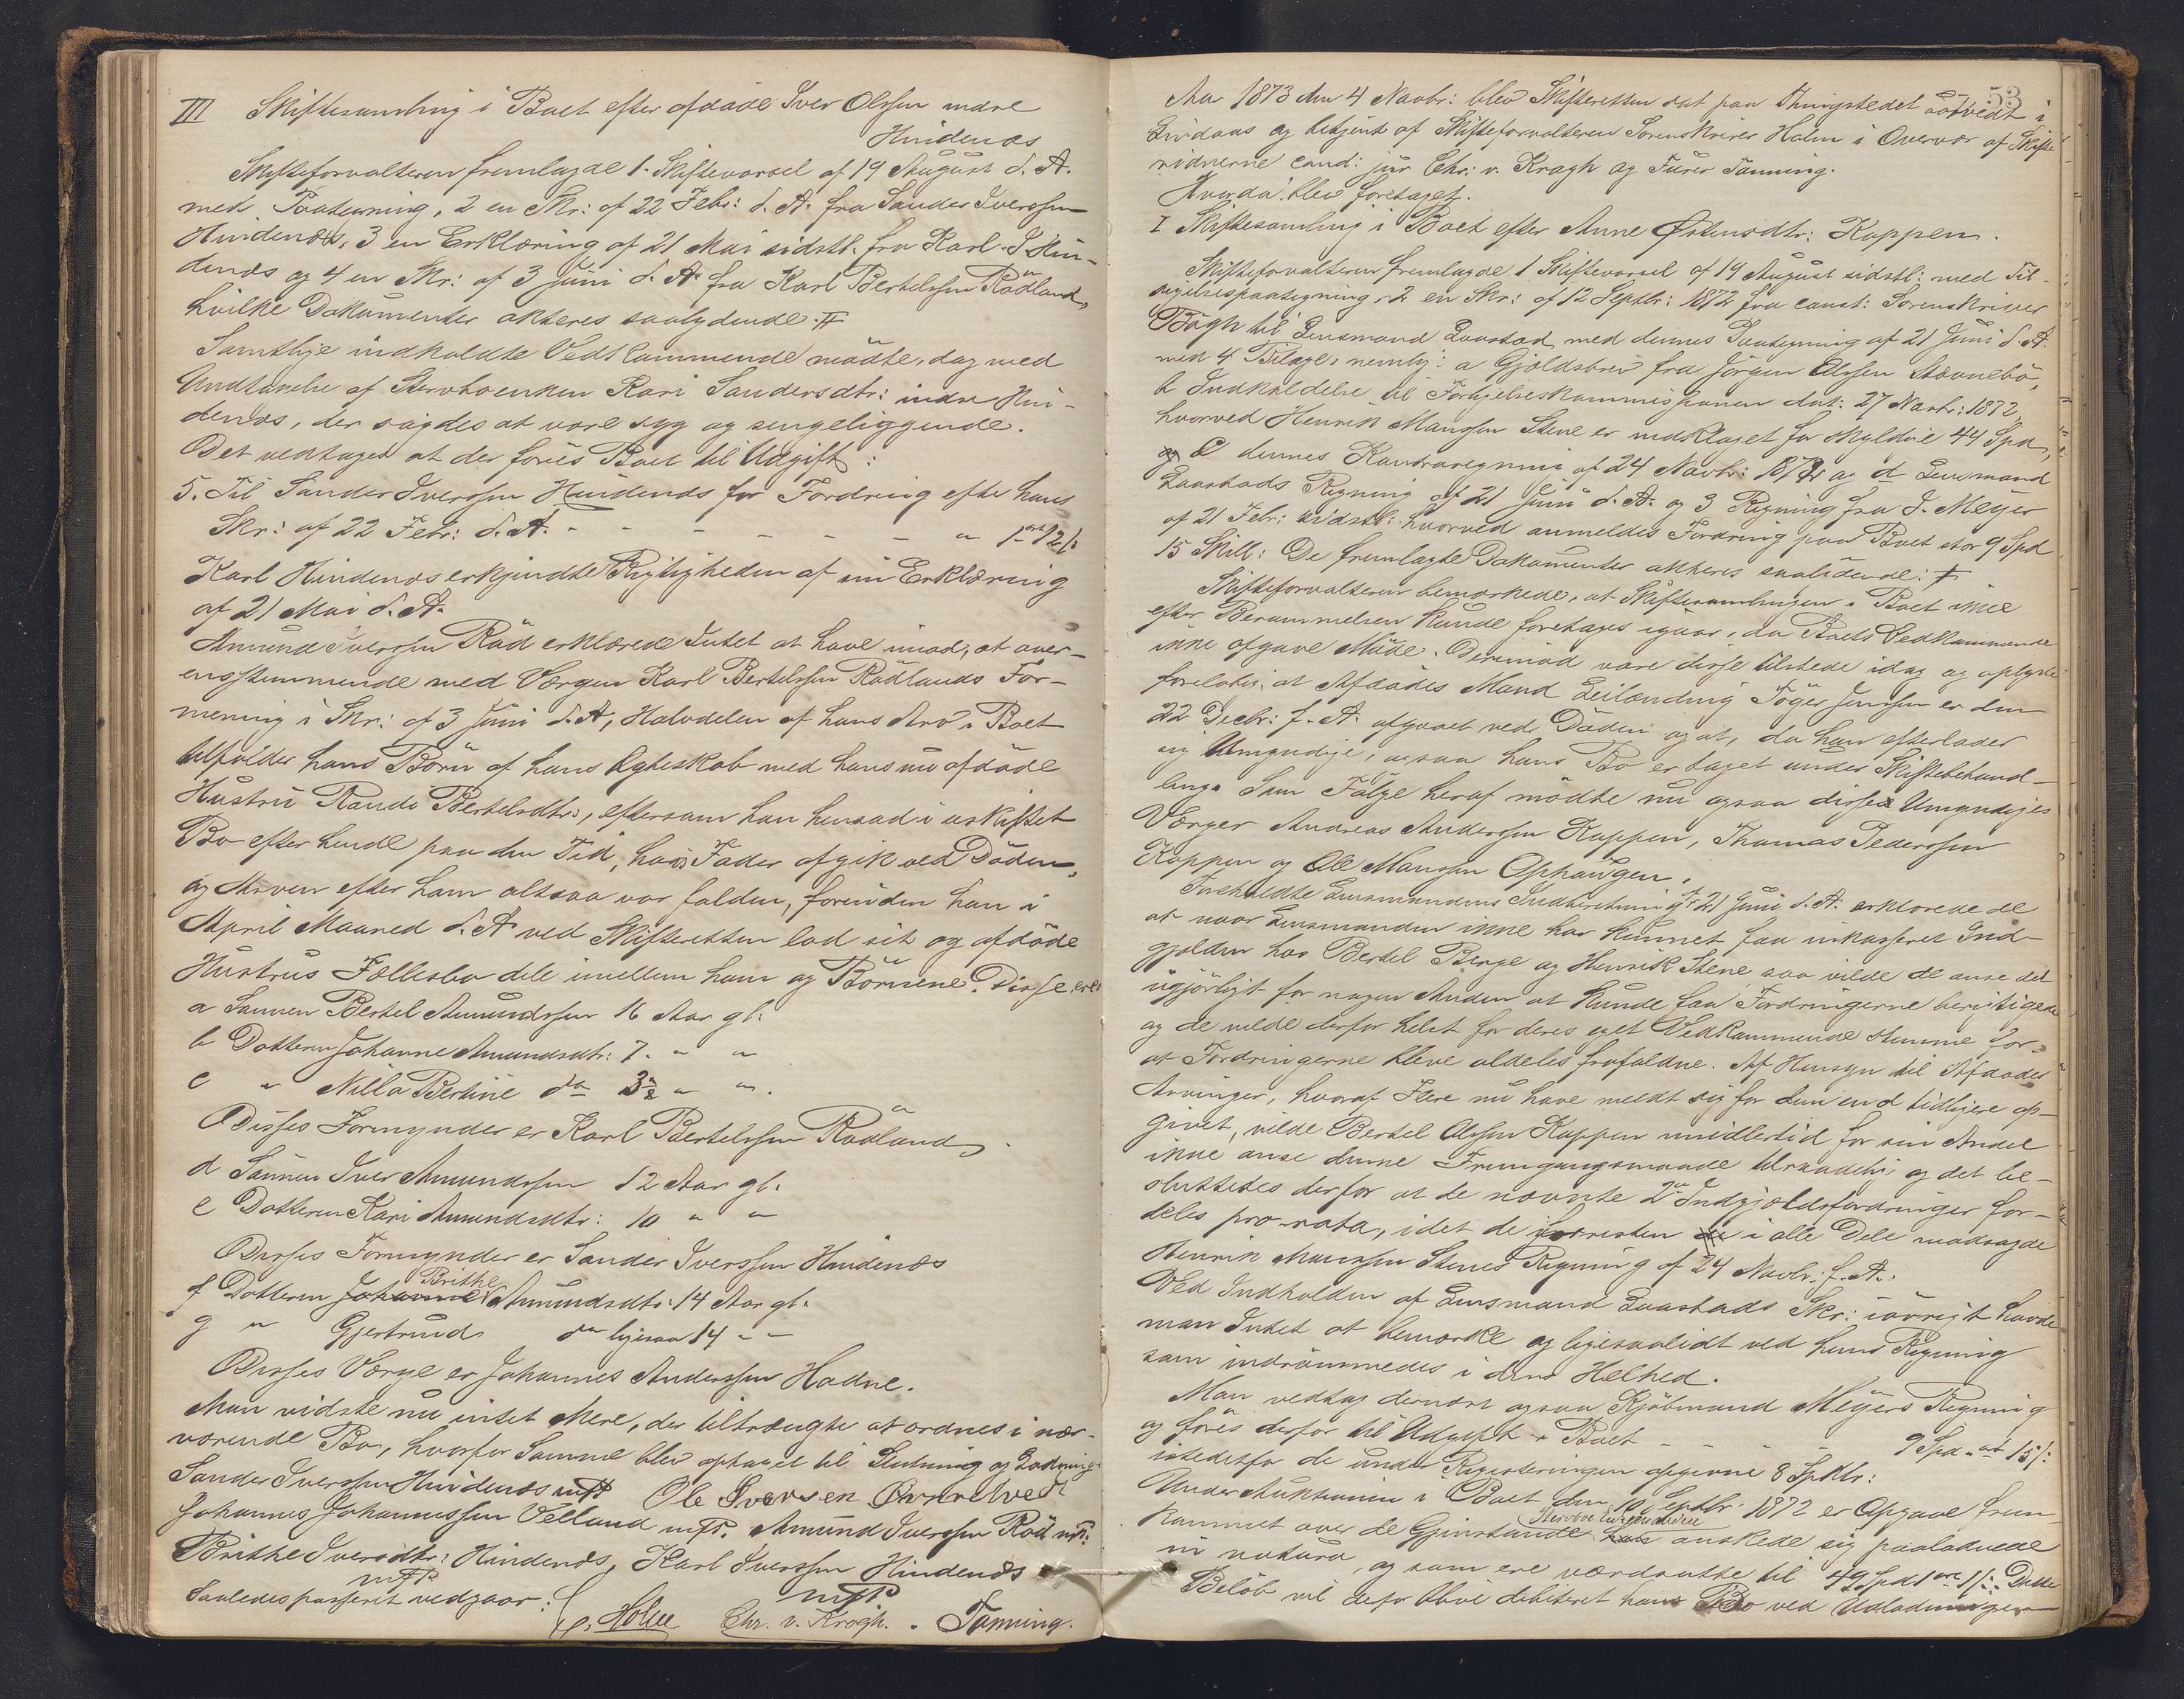 III Skiftesamling i Boet efter afdøde Iver Olssen indre
Hindenæs
Skifteforvalteren fremlagde 1. Skiftevarsel af 19 August d. A.
med Paategning, 2 en Skr: af 22 Febr: d. A. fra Sander Iverssen
Hindenæs, 3 en Erklæring af 21 Mai sidstl. fra Karl I Hin-
denæs og 4 en Skr: af 3 Juni d. A. fra Karl Bertelssen Rödland,
hvilke Dokumenter akteres saalydende: #
Samtlige indkaldte Vedkommende mödte, dog med
Undtagelse af Stervboenken Kari Sandersdtr: indre Hin-
denæs, der sagdes at være syg og sengeliggende.
Det vedtages at der föres Boet til Udgift:
5. Til Sander Iverssen Hindenæs for Fordring efter hans
Skr: af 22 Febr: d. A. - - - - - - " 1 ort 12 /:
Karl Hindenæs erkjendte Rigtigheden af sin Erklæring
af 21 Mai d. A.
Amund Iverssen Röd erklærede Intet at have imod, at over-
ensstemmende med Værgen Karl Bertelssen Rödlands For-
mening i Skr: af 3 Juni d. A, Halvdelen af hans Arv i Boet
tilfalder hans Börn af hans Ægteskab med hans nu afdöde
Hustru Randi Bertelsdtr:, eftersom han hensad i uskiftet
Bo efter hende paa den Tid, hans Fader afgik ved Döden,
og Arven efter ham altsaa var falden, forinden han i
April Maaned d. A. ved Skifteretten lod sit og afdöde
Hustrus Fællesbo dele imellem ham og Börnene. Disse ere:
a Sönnen Bertel Amundssen 16 Aar gl:
b Datteren Johanne Amundsdtr: 7. " "
c " Nilla Bertine do 3½ " ".
Disses Formynder er Karl Bertelssen Rödland,
d Sönnen Iver Amundssen 12 Aar gl.
e Datteren Kari Amundsdtr: 10 " "
Disses Formynder er Sander Iverssen Hindenæs
f Datteren Johanne Brithe Amundsdtr: 14 Aar gl:
g " Gjertrud do ligesaa 14 - -
Disses Værge er Johannes Anderssen Hodne.
Man vidste nu intet Mere, der tiltrængte at ordnes i nær-
værende Bo, hvorfor Samme blev optaget til Slutning og Lodning
Sander Iverssen Hindenæs mfP Ole Iversen
Johannes Johannessen Velland mfP. Amund Iverssen Röd mfP:
Brithe Iversdtr: Hindenæs, Karl Iverssen Hindenæs
mfP mfP
Saaledes passeret vedgaar:
Holm Chr. v. Krogh. Tanning.
53
Aar 1873 den 4 Novbr: blev Skifteretten sat paa Thingstedet i
Lindaas og betjent af Skifteforvalteren Sorenskriver Holm i Overvær af Skifte
vidnerne cand: jur Chr: v. Krogh og Furer Tanning.
Hvorda blev foretaget.
I Skiftesamling i Boet efter Anne Østensdtr: Koppen.
Skifteforvalteren fremlagde 1 Skiftevarsel af 19 August sidstl: med Til-
sigelsespaategning, 2 en Skr: af 12 Septbr: 1872 fra const: Sorenskriver
Bögh til Lensmand Laastad, med dennes Paategning af 21 Juni d. A.
med 4 Bilage, nemlig: a Gjældsbrev fra Jörgen Olssen
b Indkaldelse til Forligelseskommissionen dat: 27 Novbr: 1872,
hvorved Henrik Monssen Stene er indklaget for skyldige 44 Spd,
c dennes Kontraregning af 24 Novbr: 1872 og d Lensmand
Laastads Regning af 21 Juni d. A. og 3 Regning fra J. Meyer
af 21 Febr: sidstl: hvorved anmeldes Fordring paa Boet stor 9 Spd
15 Skill: De fremlagte Dokumenter akteres saalydende: #
Skifteforvalteren bemærkede, at Skiftesamlingen i Boet ikke
efter Berammelsen kunde foretages igaar, da Boets Vedkommende
ikke afgave Möde. Derimod vare disse tilstede idag og oplyste
foreløbig, at Afdødes Mand Leilænding Töger Jenssen er den
22 Decbr: f. A. afgaaet ved Döden og at, da han efterlader
sig Umyndige, ogsaa hans Bo er taget under Skiftebehand-
ling. Som Fölge heraf mödte nu ogsaa disses Umyndiges
Værger Andreas Anderssen Koppen, Thomas Pederssen
Koppen og Ole Monssen Ophaugen.
Foreholdte Lensmandens Indberetning af 21 Juni d. A. erklærede de
at naar Lensmanden ikke har kunnet faa inkasseret Ind-
gjælden hos Bertel Berge og Henrik Stene saa vilde de anse det
ugjörligt for nogen Anden at kunde faa Fordringerne berigtigede
og de vilde derfor helst for deres eget Vedkommende stemme for,
at Fordringerne bleve aldeles frafaldne. Af Hensyn til Afdødes
Arvinger, hvoraf Flere nu have meldt sig for dem end tidligere op-
givet, vilde Bertel Olssen Koppen imidlertid for sin Andel
ikke anse denne Fremgangsmaade tilraadelig og det be-
sluttedes derfor at de nævnte 2de Indgjældsfordringer for-
deles pro rata, idet de forresten i alle Dele modsagde
Henrik Monssen Stenes Regning af 24 Novbr: f. A.
Ved Indholden af Lensmand Laastads Skr: iövrigt havde
man Intet at bemærke og ligesaalidt ved hans Regning
som indrömmedes i dens Helhed.
Man vedtog dernæst ogsaa Kjöbmand Meyers Regning
og föres derfor til Udgift i Boet - - - - 9 Spd " ort 15 /:
istedetfor de under Registreringen opgivne 8 Spdlr:
Under Auktionen i Boet den 10 Septbr: 1872 er Opgave frem
kommet over de Gjenstande Stervboenkemanden önskede sig paalodnede
in natura og som ere værdsatte til 49 Spd 1 ort 1 /:. Dette
Belöb vil derfor blive debiteret hans Bo ved Udlodningen